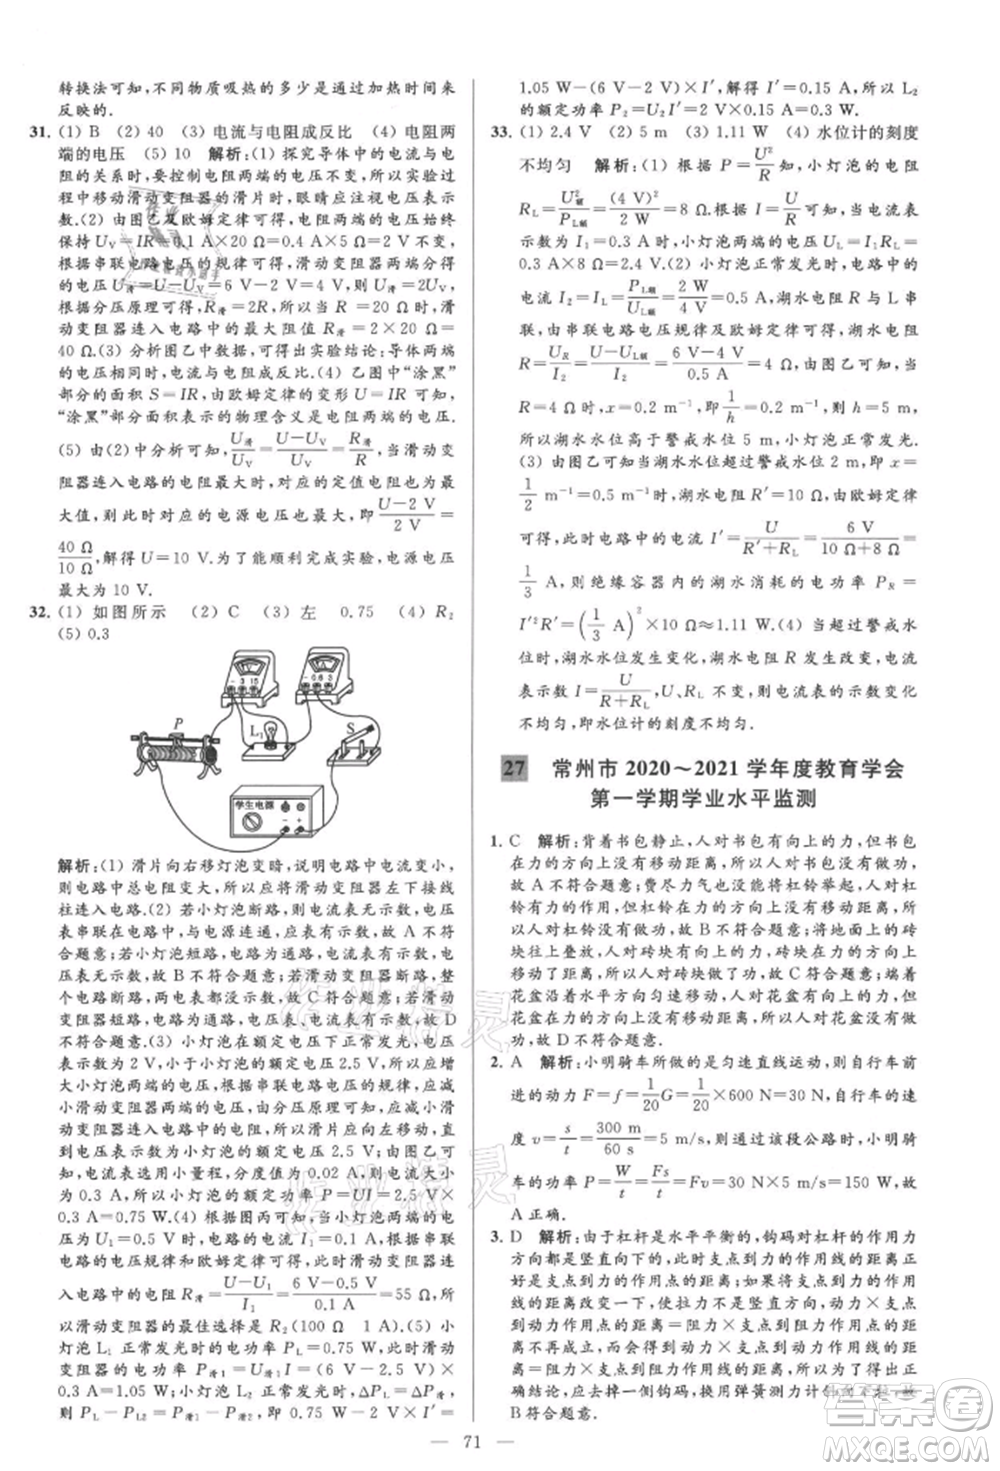 转换法可知,不同物质吸热的多少是通过加热时间来
反映的.
31. (1) B (2) 40 (3) 电流与电阻成反比 (4) 电阻两
端的电压 (5) 10 解析:(1) 探究导体中的电流与电阻
的关系时,要控制电阻两端的电压不变,所以在实验过
程中移动滑动变阻器的滑片时,眼睛应注视电压表示
数.(2) 由图乙及欧姆定律可得,电阻两端的电压始终
保持 U_V=IR=0.1 A×20 Ω=0.4 A×5 Ω=2 V 不变,
根据串联电路电压的规律可得,滑动变阻器两端分得
的电压 U_滑=U−U_V=6 V−2 V=4 V,所以 U_滑=2U_V,
根据分压原理可得,R_滑=2R,所以当 R=20 Ω 时,滑
动变阻器连入电路中的最大阻值 R_滑=2×20 Ω=
40 Ω.(3) 分析图乙中数据可得实验结论:导体两端的
电压一定时,电流与电阻成反比.(4) 乙图中“涂黑”
部分的面积 S=IR,由欧姆定律的变形 U=IR 可知,
“涂黑”部分面积表示的物理含义是电阻两端的电压.
(5) 由分压原理可得 U_滑/U_V=(U−U_V)/U_V=R_滑/R,当滑动变
阻器连入电路的电阻最大时,对应的定值电阻也最
大值,此时对应的电源电压也最大,即 (U−2 V)/2 V=
40 Ω/10 Ω,解得 U=10 V.为了能顺利完成实验,电源电压
最大为 10 V.
32. (1) 如图所示 (2) C (3) 左 0.75 (4) R₂
(5) 0.3
P
L₁
S
− 3 15
− 0.6 3
学生电源
解析:(1) 滑片向右移灯泡变暗,说明电路中电流变小,
则电路中总电阻变大,所以应将滑动变阻器左下接线
柱连入电路.(2) 若小灯泡断路,则电流表无示数,电压
表串联在电路中,与电源连通,有示数,故 A 不符合题
意;若小灯泡短路,则电流表有示数,电压表被短路,
无示数,故 B 不符合题意;若滑动变阻器断路,整个
电路断路,两电表都没有示数,故 C 符合题意;若滑动变
阻器短路,电路为通路,电压表、电流表均有示数,故 D
不符合题意.(3) 小灯泡的额定电压为 2.5 V,此时电压
表示数为 2 V,小于小灯泡的额定电压 2.5 V,应增
大小灯泡两端的电压,根据串联电路电压的规律,应减
小滑动变阻器两端的电压,由分压原理可知,应减小滑
动变阻器连入电路的电阻,所以滑片应向左移动,直到
电压表示数为小灯泡的额定电压 2.5 V;由图乙可
知,电流表选择小量程,分度值为 0.02 A,其示数为
0.3 A,则小灯泡的额定功率 P=UI=2.5 V×
0.3 A=0.75 W.(4) 根据图丙可知,当小灯泡两端的
电压 U₁=0.5 V 时,通过小灯泡的电流 I₁=0.1 A,由
串联电路电压的规律和欧姆定律可得,滑动变阻器连
入电路中的电阻 R_滑=(U−U₁)/I₁=(6 V−0.5 V)/0.1 A=55 Ω,所
以滑动变阻器的最佳选择是 R₂(100 Ω 1 A).(5) 当
小灯泡 L₁ 正常发光时的电功率为 0.75 W,滑动变阻
器的电功率 P_滑1=U_滑I=(6 V−2.5 V)×0.3 A=
1.05 W.当小灯泡 L₂ 正常发光时,滑动变阻器电功率
则 P_L−P_L2=P_滑1−P_滑2,因为 P_L=P_L2,所以 P_滑2=P_滑1=
1.05 W=(6 V−2 V)×I′,解得 I′=0.15 A,所以 L₂
的额定功率 P₂=U₂I′=2 V×0.15 A=0.3 W.
33. (1) 2.4 V (2) 5 m (3) 1.11 W (4) 水位计的刻度
不均匀 解析:(1) 根据 P=U²/R 可知,小灯泡的电阻
R_L=U_额²/P_L额=(4 V)²/2 W=8 Ω.根据 I=U/R 可知,当电流表
示数为 I₁=0.3 A 时,小灯泡两端的电压 U_L=I₁R_L=
0.3 A×8 Ω=2.4 V.(2) 小灯泡正常发光时,电路中的
电流 I₂=I_L=P_L额/U_L额=2 W/4 V=0.5 A,湖水电阻 R 与 L 串
联,由串联电路电压规律及欧姆定律可得,湖水电阻
R=U_R/I₂=(U−U_L额)/I₂=(6 V−4 V)/0.5 A=4 Ω,由图乙可知,当
R=4 Ω 时,x=0.2 m⁻¹,即 1/h=0.2 m⁻¹,所以 h=5 m,
所以湖水水位高于警戒水位 5 m 时,小灯泡正常发光.
(3) 由图乙可知湖水水位超过警戒水位 2 m,即 x=
1/2 m⁻¹=0.5 m⁻¹时,湖水电阻 R′=10 Ω,由欧姆定律
可得,此时电路中的电流 I′=U/(R′+R_L)=6 V/(10 Ω+8 Ω)=
1/3 A,则绝缘容器内的湖水消耗的电功率 P_R=
I′²R′=(1/3 A)²×10 Ω≈1.11 W.(4) 当超过警戒水
位时,湖水水位发生变化,湖水电阻 R 发生改变,电流
表示数 I=U/(R+R_L),U、R_L 不变,所以电流表的示数变化
不均匀,即水位计的刻度不均匀.
27 常州市 2020～2021 学年度教育学会
第一学期学业水平监测
1. C 解析:背着书包静止,人对书包有向上的力,但书包
在力的方向上没有移动距离,所以人对书包没有做功,
故 A 不符合题意;费尽力气也没有把杠铃举起,人对杠
铃有力的作用,但杠铃没有在力的方向上移动距离,
所以人对杠铃没有做功,故 B 不符合题意;将地上的砖
块往上叠放,人对砖块有向上的力,砖块在力的方向上
移动了距离,所以人对砖块做了功,故 C 符合题意;端着
花盆沿水平方向匀速移动,人对花盆有向上的力,花盆
在力的方向上没有移动距离,所以人对花盆没有做功,
故 D 不符合题意.
2. A 解析:小明骑车所做的是匀速直线运动,则自行车
的动力 F=f=1/20 G=1/20×600 N=30 N,自行车的速
度 v=s/t=300 m/60 s=5 m/s,则通过该段公路时,小明骑
车的功率 P=W/t=Fs/t=Fv=30 N×5 m/s=150 W,故
A 正确.
3. D 解析:由于杠杆是水平平衡的,钩码对杠杆的作用力
方向都是竖直向下的,此时支点到力的作用线的距离正
好是支点到力的作用点的距离;如果支点到力的作用线
的距离和支点到力的作用点的距离相等,则不能得出
支点到力的作用线的距离与力的关系,所以实验时应该
改变支点到力的作用线的距离,使拉力不再竖直向下,
也就是使支点到力的作用点的距离等于支点到力的作用线的
距离不再成立,所以,为了得出正
确结论,应去掉一侧钩码,改用弹簧测力计倾斜拉,故
D 符合题意.
71
作业精灵
答案圈
MXQE.COM